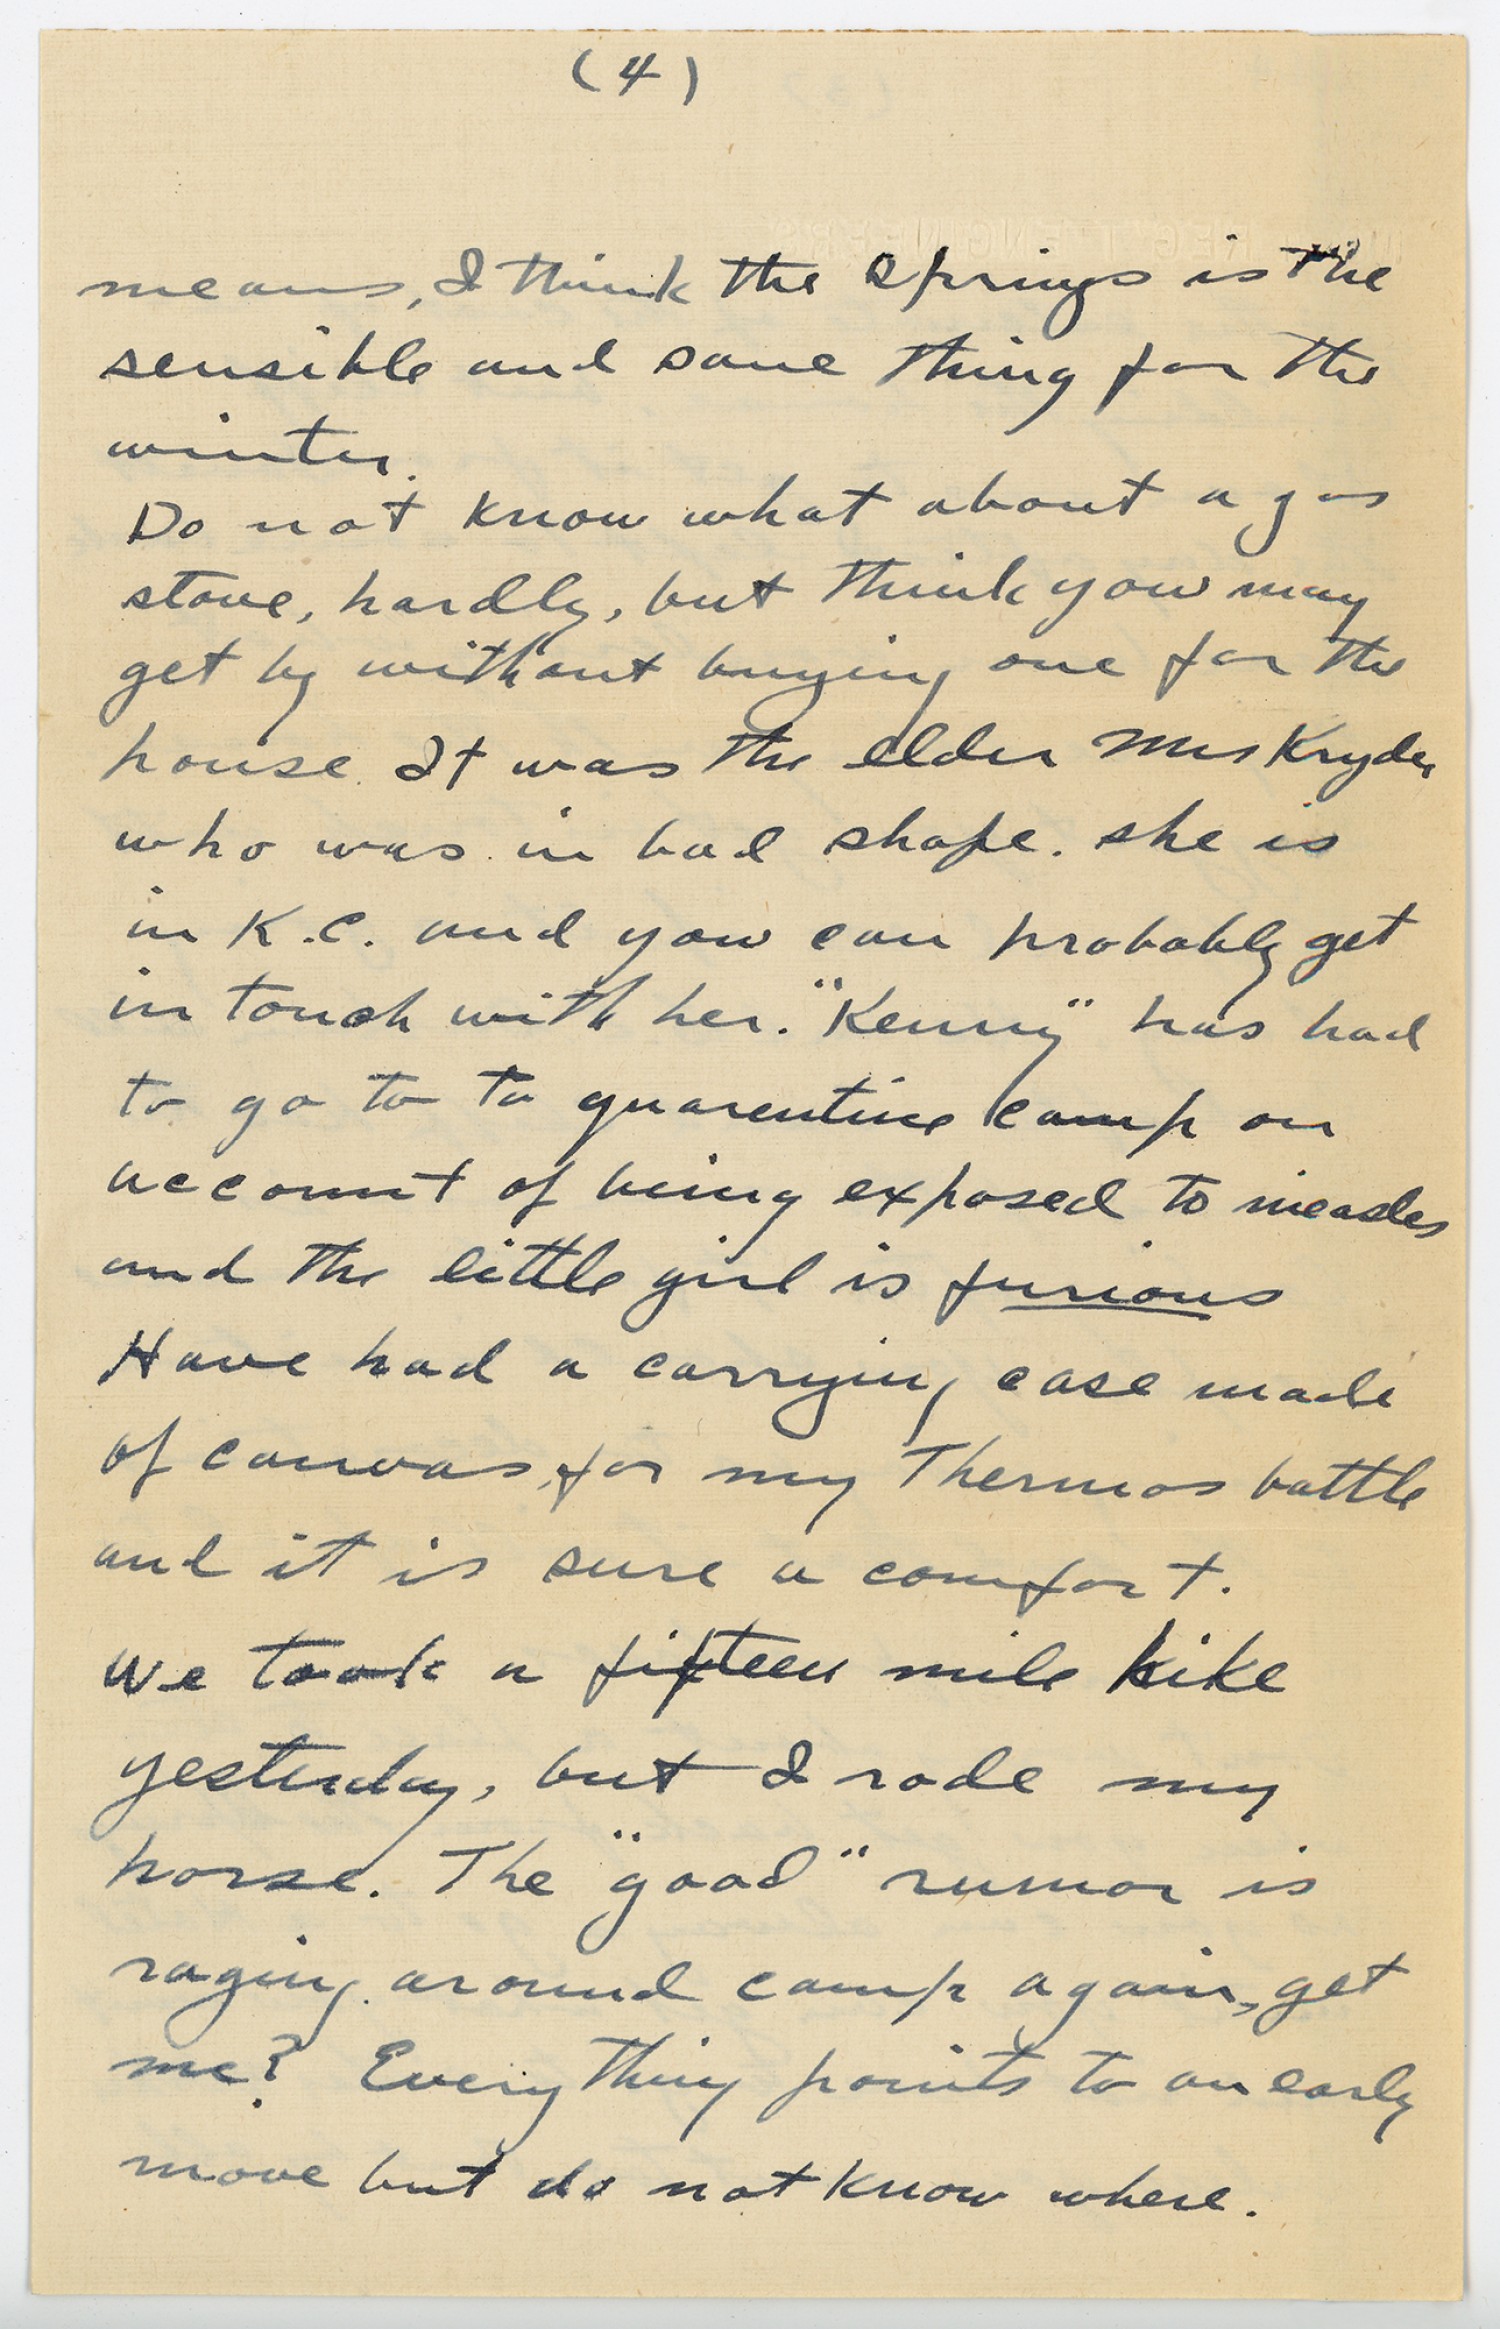 (4)
means, I think the Springs is the
sensible and sane thing for the
winter.
Do not know what about a gas
stove, hardly, but think you may
get by without buying one for the
house. It was the elder Mrs Kryder
who was in bad shape. she is
in K.C. and you can probably get
in touch with her. "Kenny" has had
to go to to quarentine camp on
account of being exposed to measles
and the little girl is furious
Have had a carrying case made
of canvas, for my Thermos bottle
and it is sure a comfort.
We took a fifteen mile hike
yesterday, but I rode my
horse. The "good" rumor is
raging around camp again, get
me? Every thing points to an early
move but do not know where.